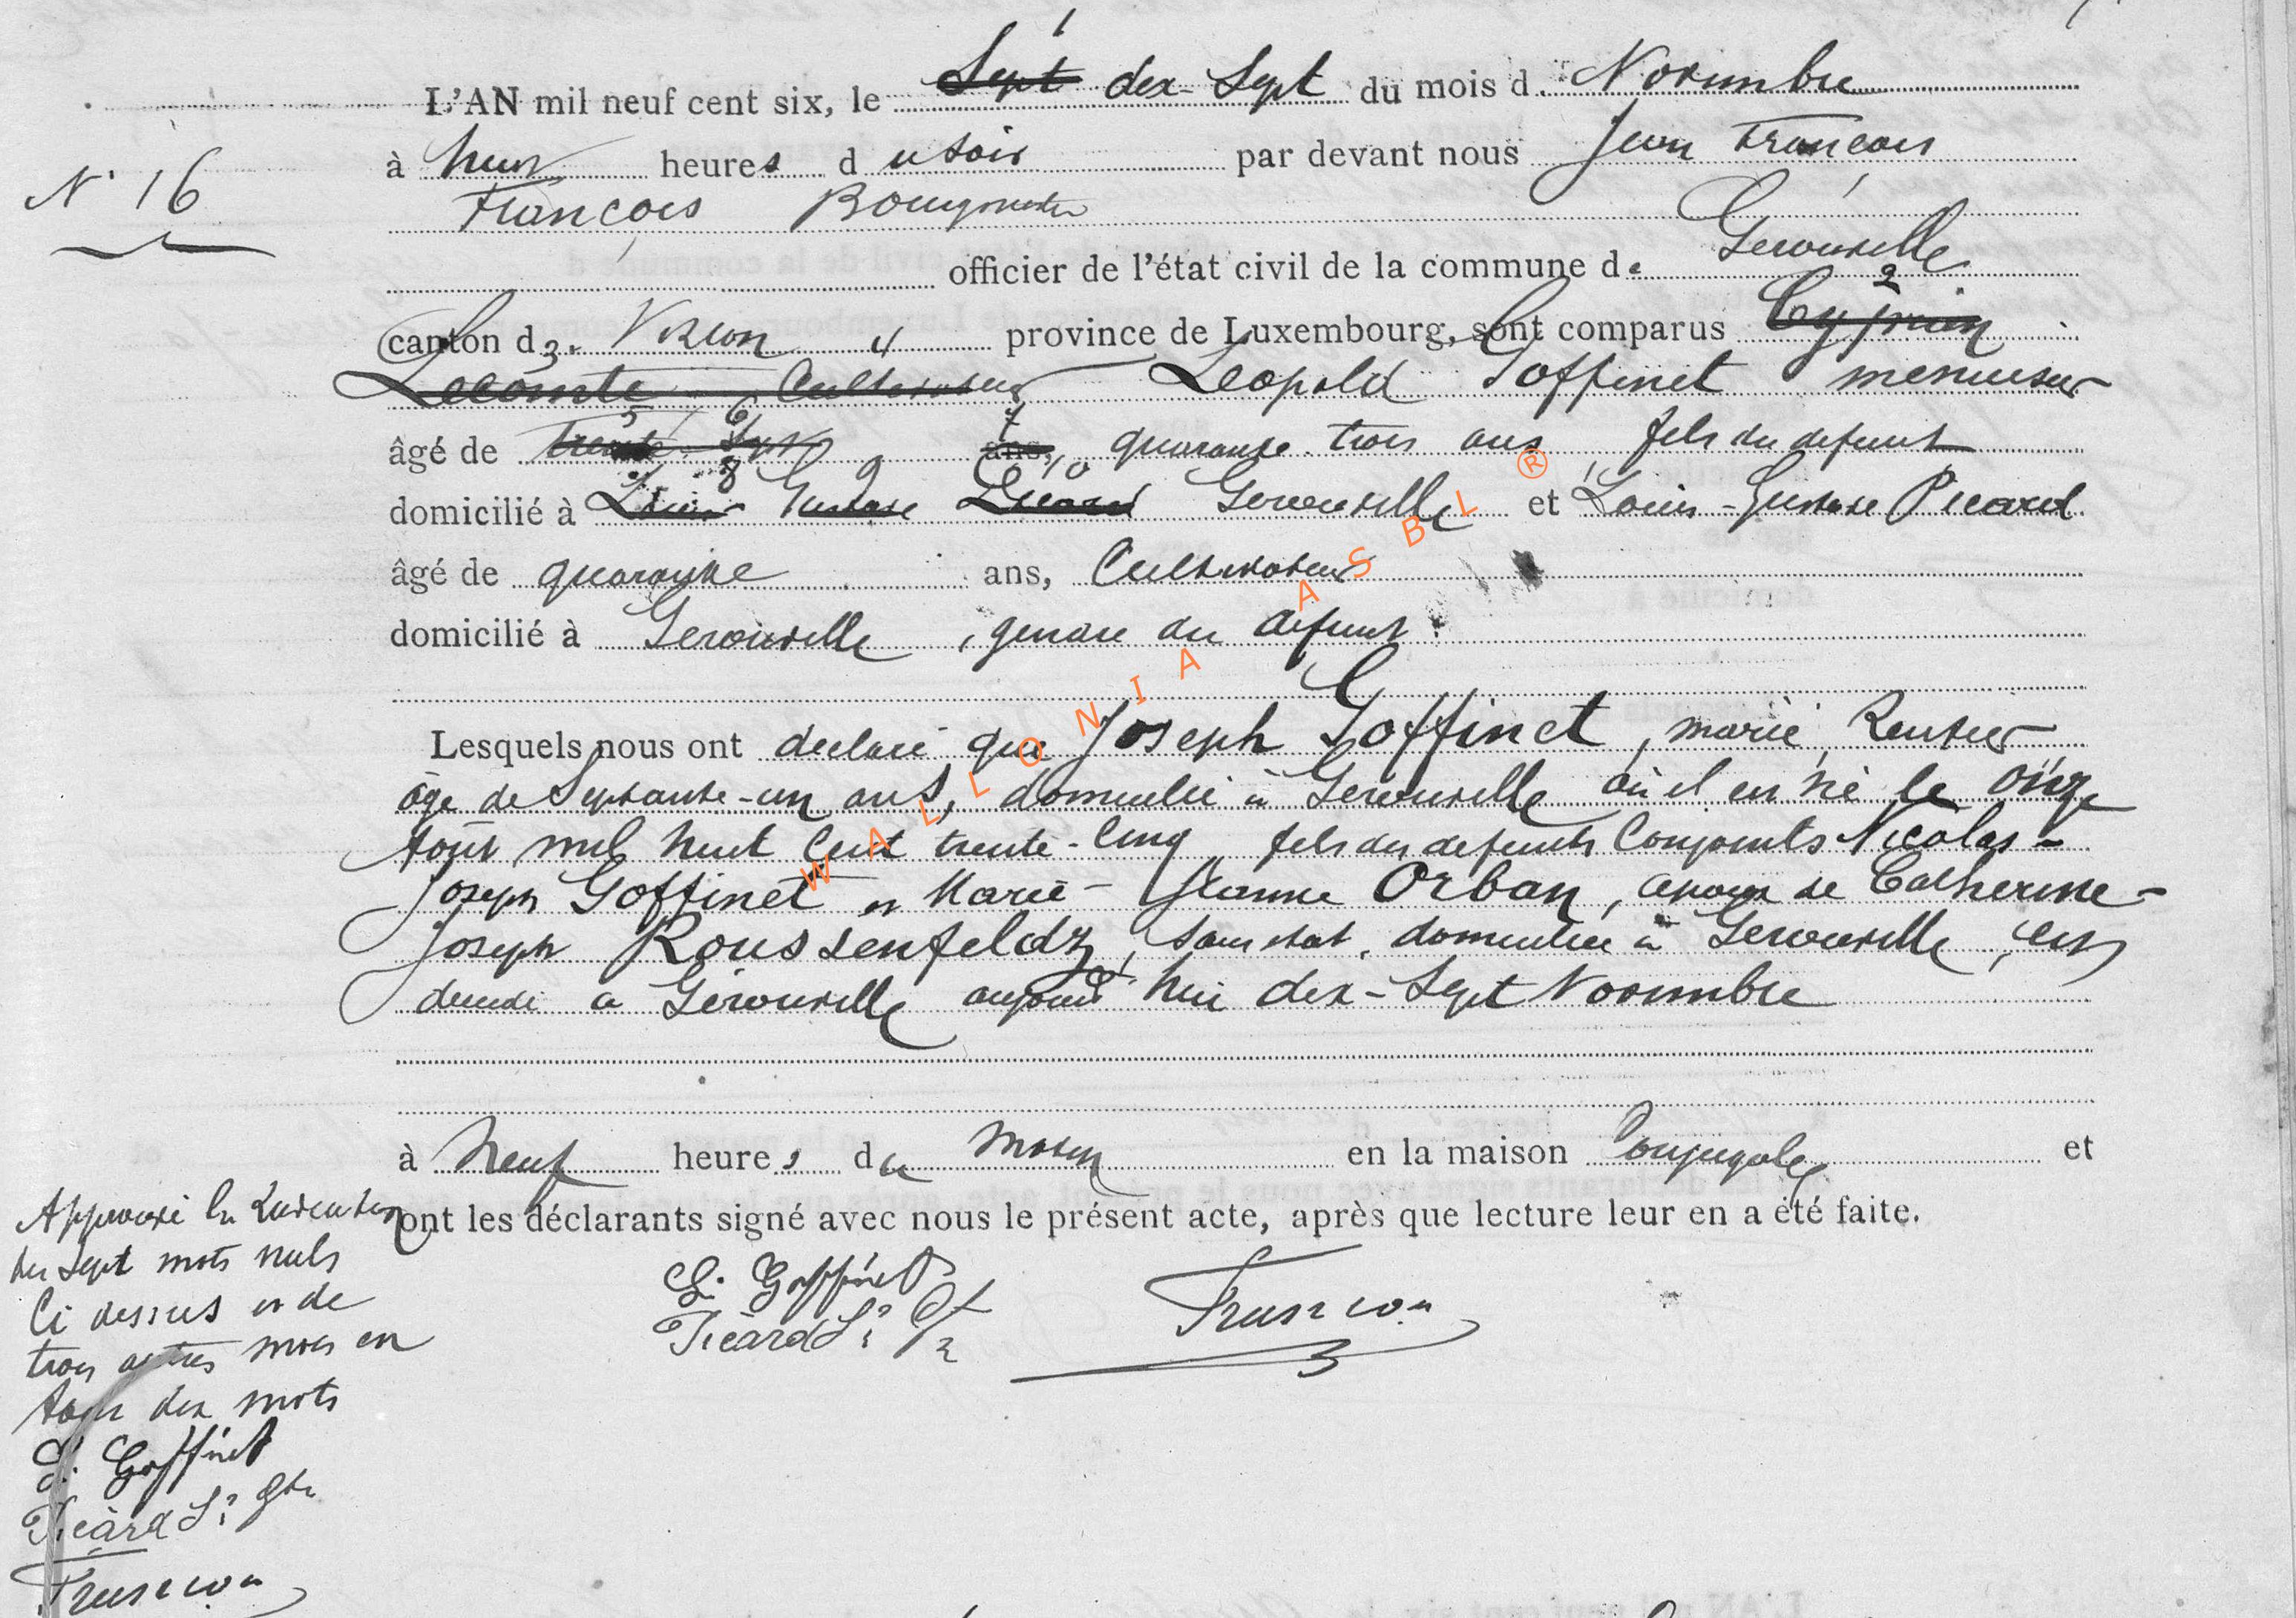 L'AN mil neuf cent six, le Sept dix-Sept du mois de Novembre
N° 16
à huit heures du soir par devant nous Jean François
François Bourgmestre
officier de l'état civil de la commune de Gérouville
canton de Virton province de Luxembourg, sont comparus Cyprien
Lecomte Cultivateur Léopold Goffinet menuisier
âgé de trente Sept ans, quarante trois ans, fils du défunt
domicilié à Louis Gustave Picard Gérouville et Louis-Gustave Picard
âgé de quarante ans, Cultivateur
domicilié à Gérouville, gendre du défunt.
Lesquels nous ont déclaré que Joseph Goffinet, marié, Rentier
âgé de Septante-un ans, domicilié à Gérouville où il est né le onze
Août mil huit cent trente-cinq fils des défunts Conjoints Nicolas-
Joseph Goffinet et Marie-Jeanne Orban, époux de Catherine-
Joseph Roussenfeldz, sans état, domiciliée à Gérouville, est
décédé à Gérouville aujourd'hui dix-Sept Novembre
à Neuf heures du Matin en la maison Conjugale et
ont les déclarants signé avec nous le présent acte, après que lecture leur en a été faite.
L. Goffinet
Picard Ls Gve
Approuvé la
des sept mots nuls
Ci dessus et de
trois autres mots en
tout dix mots
L. Goffinet
Picard Ls Gve
WALLONIA ASBL ®